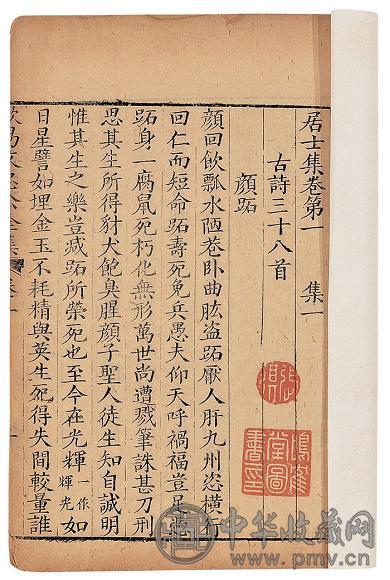 居士集卷第一 集一
古詩三十八首
顏跖
顏回飲瓢水陋巷卧曲肱盗跖厭人肝九州恣橫行
回仁而短命跖壽死免兵愚夫仰天呼禍福豈足
跖身一腐鼠死朽化無形萬世尚遭戮筆誅甚刀刑
思其生所得豺犬飽臭腥顏子聖人徒生知自誠明
惟其生之樂豈减跖所榮死也至今在光輝一作輝光如
日星譬如埋金玉不耗精與英生死得失間較量誰
中华收藏网
www.pmv.cn